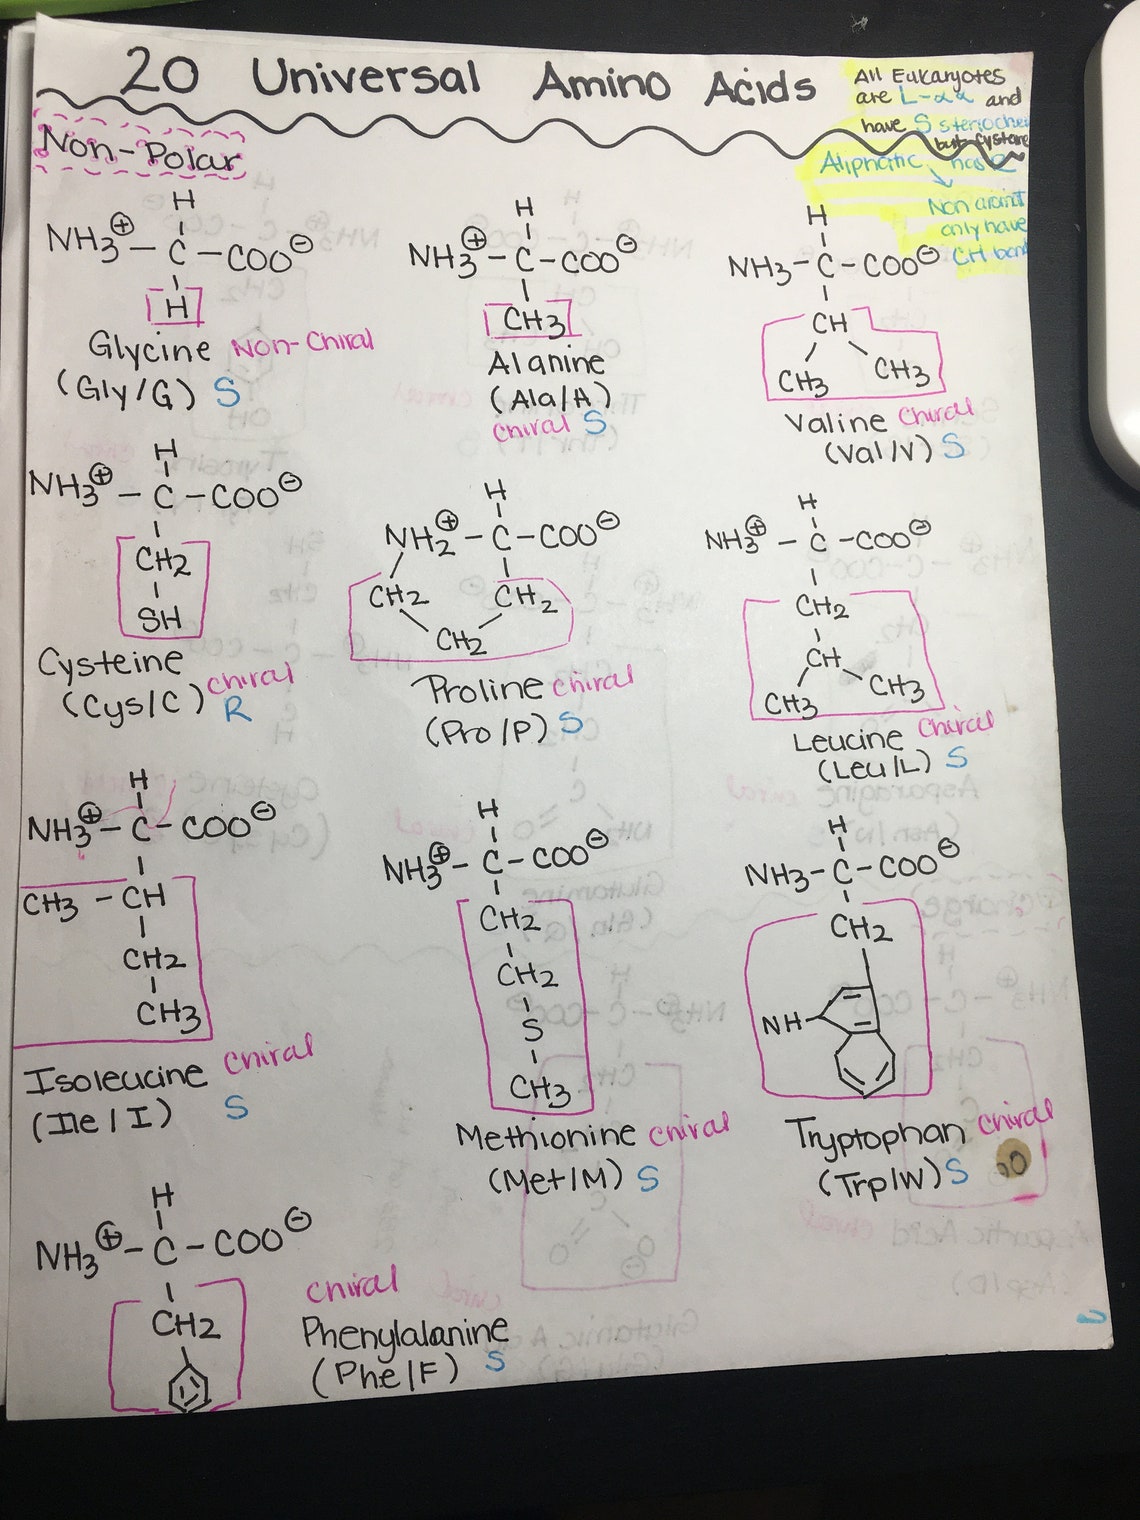 20 Universal Amino Acids
All Eukaryotes
are L-αα and
have S
but Cysteine
has R
Aliphatic
Non
only have
CH
Non-Polar
H
NH3⊕ – C – COO⊖
H
Glycine Non-Chiral
(Gly/G) S
H
NH3⊕ – C – COO⊖
CH3
Alanine
(Ala/A)
chiral S
H
NH3 – C – COO⊖
CH
CH3 CH3
Valine chiral
(Val/V) S
H
NH3⊕ – C – COO⊖
CH2
SH
Cysteine
(Cys/C) chiral
R
H
NH2⊕ – C – COO⊖
CH2 CH2
CH2
Proline chiral
(Pro/P) S
H
NH3⊕ – C – COO⊖
CH2
CH
CH3 CH3
Leucine chiral
(Leu/L) S
H
NH3⊕ – C – COO⊖
CH3 – CH
CH2
CH3
Isoleucine chiral
(Ile/I) S
H
NH3⊕ – C – COO⊖
CH2
CH2
S
CH3
Methionine chiral
(Met/M) S
H
NH3 – C – COO⊖
CH2
NH
Tryptophan chiral
(Trp/W) S
H
NH3⊕ – C – COO⊖
CH2
chiral
Phenylalanine
(Phe/F) S